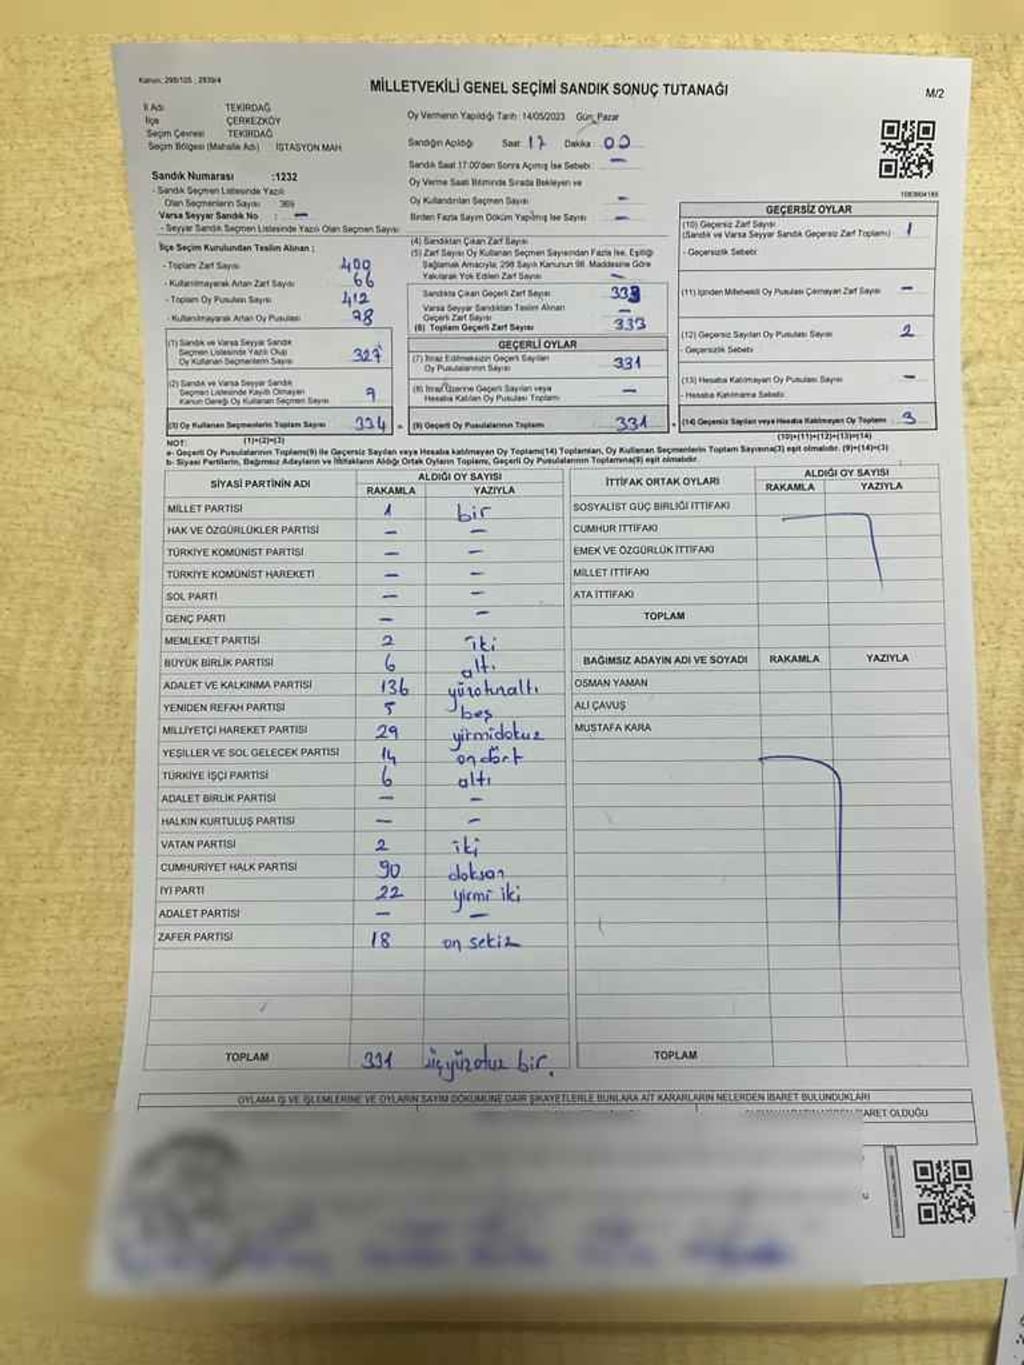 Kanun: 298/105 ; 2839/4
MİLLETVEKİLİ GENEL SEÇİMİ SANDIK SONUÇ TUTANAĞI
M/2
İl Adı TEKİRDAĞ
İlçe ÇERKEZKÖY
Seçim Çevresi TEKİRDAĞ
Seçim Bölgesi (Mahalle Adı) İSTASYON MAH.
Sandık Numarası :1232
- Sandık Seçmen Listesinde Yazılı
Olan Seçmenlerin Sayısı 369
Varsa Seyyar Sandık No : –
- Seyyar Sandık Seçmen Listesinde Yazılı Olan Seçmen Sayısı
Oy Vermenin Yapıldığı Tarih: 14/05/2023 Gün: Pazar
Sandığın Açıldığı Saat: 17 Dakika: 00
Sandık Saat 17:00'den Sonra Açılmış İse Sebebi: –
Oy Verme Saati Bitiminde Sırada Bekleyen ve
Oy Kullandırılan Seçmen Sayısı : –
Birden Fazla Sayım Döküm Yapılmış İse Sayısı : –
İlçe Seçim Kurulundan Teslim Alınan :
- Toplam Zarf Sayısı 400
- Kullanılmayarak Artan Zarf Sayısı 66
- Toplam Oy Pusulası Sayısı 412
- Kullanılmayarak Artan Oy Pusulası 78
(1) Sandık ve Varsa Seyyar Sandık
Seçmen Listesinde Yazılı Olup
Oy Kullanan Seçmenlerin Sayısı 327
(2) Sandık ve Varsa Seyyar Sandık
Seçmen Listesinde Kayıtlı Olmayan
Kanun Gereği Oy Kullanan Seçmen Sayısı
(3) Oy Kullanan Seçmenlerin Toplam Sayısı 334
(1)+(2)=(3)
(4) Sandıktan Çıkan Zarf Sayısı
(5) Zarf Sayısı Oy Kullanan Seçmen Sayısından Fazla İse, Eşitliği
Sağlamak Amacıyla, 298 Sayılı Kanunun 98. Maddesine Göre
Yakılarak Yok Edilen Zarf Sayısı –
Sandıkta Çıkan Geçerli Zarf Sayısı 333
Varsa Seyyar Sandıktan Teslim Alınan
Geçerli Zarf Sayısı –
(6) Toplam Geçerli Zarf Sayısı 333
GEÇERLİ OYLAR
(7) İtiraz Edilmeksizin Geçerli Sayılan
Oy Pusulalarının Sayısı 331
(8) İtiraz Üzerine Geçerli Sayılan veya
Hesaba Katılan Oy Pusulası Toplamı –
(9) Geçerli Oy Pusulalarının Toplamı 331
GEÇERSİZ OYLAR
(10) Geçersiz Zarf Sayısı
(Sandık ve Varsa Seyyar Sandık Geçersiz Zarf Toplamı) 1
- Geçersizlik Sebebi:
(11) İçinden Milletvekili Oy Pusulası Çıkmayan Zarf Sayısı –
(12) Geçersiz Sayılan Oy Pusulası Sayısı 2
- Geçersizlik Sebebi:
(13) Hesaba Katılmayan Oy Pusulası Sayısı –
- Hesaba Katılmama Sebebi:
(14) Geçersiz Sayılan veya Hesaba Katılmayan Oy Toplamı 3
(10)+(11)+(12)+(13)=(14)
NOT:
a- Geçerli Oy Pusulalarının Toplamı(9) ile Geçersiz Sayılan veya Hesaba katılmayan Oy Toplamı(14) Toplamları, Oy Kullanan Seçmenlerin Toplam Sayısına(3) eşit olmalıdır. (9)+(14)=(3)
b- Siyasi Partilerin, Bağımsız Adayların ve İttifakların Aldığı Ortak Oyların Toplamı, Geçerli Oy Pusulalarının Toplamına(9) eşit olmalıdır.
SİYASİ PARTİNİN ADI ALDIĞI OY SAYISI
RAKAMLA YAZIYLA
MİLLET PARTİSİ 1 bir
HAK VE ÖZGÜRLÜKLER PARTİSİ – –
TÜRKİYE KOMÜNİST PARTİSİ – –
TÜRKİYE KOMÜNİST HAREKETİ – –
SOL PARTİ – –
GENÇ PARTİ – –
MEMLEKET PARTİSİ 2 iki
BÜYÜK BİRLİK PARTİSİ 6 altı
ADALET VE KALKINMA PARTİSİ 136 yüzotuzaltı
YENİDEN REFAH PARTİSİ 5 beş
MİLLİYETÇİ HAREKET PARTİSİ 29 yirmidokuz
YEŞİLLER VE SOL GELECEK PARTİSİ 14 ondört
TÜRKİYE İŞÇİ PARTİSİ 6 altı
ADALET BİRLİK PARTİSİ – –
HALKIN KURTULUŞ PARTİSİ – –
VATAN PARTİSİ 2 iki
CUMHURİYET HALK PARTİSİ 90 doksan
İYİ PARTİ 22 yirmi iki
ADALET PARTİSİ – –
ZAFER PARTİSİ 18 on sekiz
TOPLAM 331 üçyüzotuz bir.
İTTİFAK ORTAK OYLARI ALDIĞI OY SAYISI
RAKAMLA YAZIYLA
SOSYALİST GÜÇ BİRLİĞİ İTTİFAKI
CUMHUR İTTİFAKI
EMEK VE ÖZGÜRLÜK İTTİFAKI
MİLLET İTTİFAKI
ATA İTTİFAKI
TOPLAM
BAĞIMSIZ ADAYIN ADI VE SOYADI RAKAMLA YAZIYLA
OSMAN YAMAN
ALİ ÇAVUŞ
MUSTAFA KARA
TOPLAM
OYLAMA İŞ VE İŞLEMLERİNE VE OYLARIN SAYIM DÖKÜMÜNE DAİR ŞİKAYETLERLE BUNLARA AİT KARARLARIN NELERDEN İBARET BULUNDUKLARI
OLDUĞU